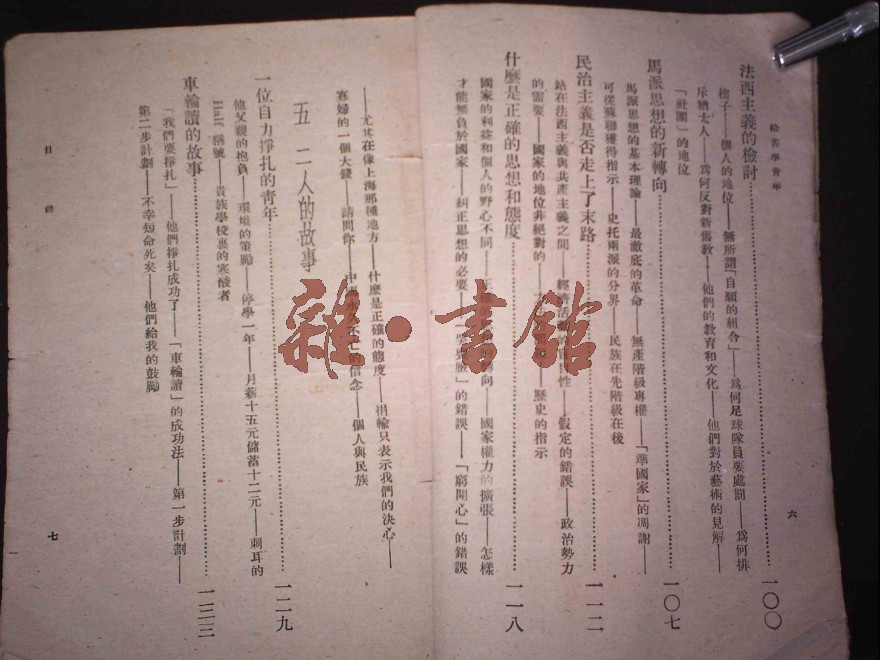 給苦學青年
六
法西主義的檢討……一〇〇
楔子——個人的地位——無所謂「自願的組合」——爲何足球隊員要處罰——爲何排
斥猶太人——爲何反對新舊敎——他們的敎育和文化——他們對於藝術的見解——
「社團」的地位
馬派思想的新轉向……一〇七
馬派思想的基本理論——最澈底的革命——無產階級專權——「準國家」的凋謝——
可從蘇聯獲得指示——史托兩派的分界——民族在先階級在後
民治主義是否走上了末路……一一二
站在法西主義與共產主義之間——經濟活動的性——假定的錯誤——政治勢力
的需要——國家的地位非絕對的——歷史的指示
什麼是正確的思想和態度……一一八
國家的利益和個人的野心不同——向——國家權力的擴張——怎樣
才能無負於國家——糾正思想的必要——」的錯誤——「窮開心」的錯誤
——尤其在像上海那種地方——什麼是正確的態度——捐輸只表示我們的決心——
寡婦的一個大錢——請問你——中的信念——個人與民族
五 二人的故事
一位自力掙扎的青年……一二九
他父親的抱負——環境的策勵——停學一年——月薪十五元儲蓄十二元——刺耳的
Half 稱號——貴族學校裏的寒酸者
車輪讀的故事……一三三
「我們要掙扎」——他們掙扎成功了——「車輪讀」的成功法——第一步計劃——
第二步計劃——不幸短命死矣——他們給我的鼓勵
目 錄
七
雜·書館